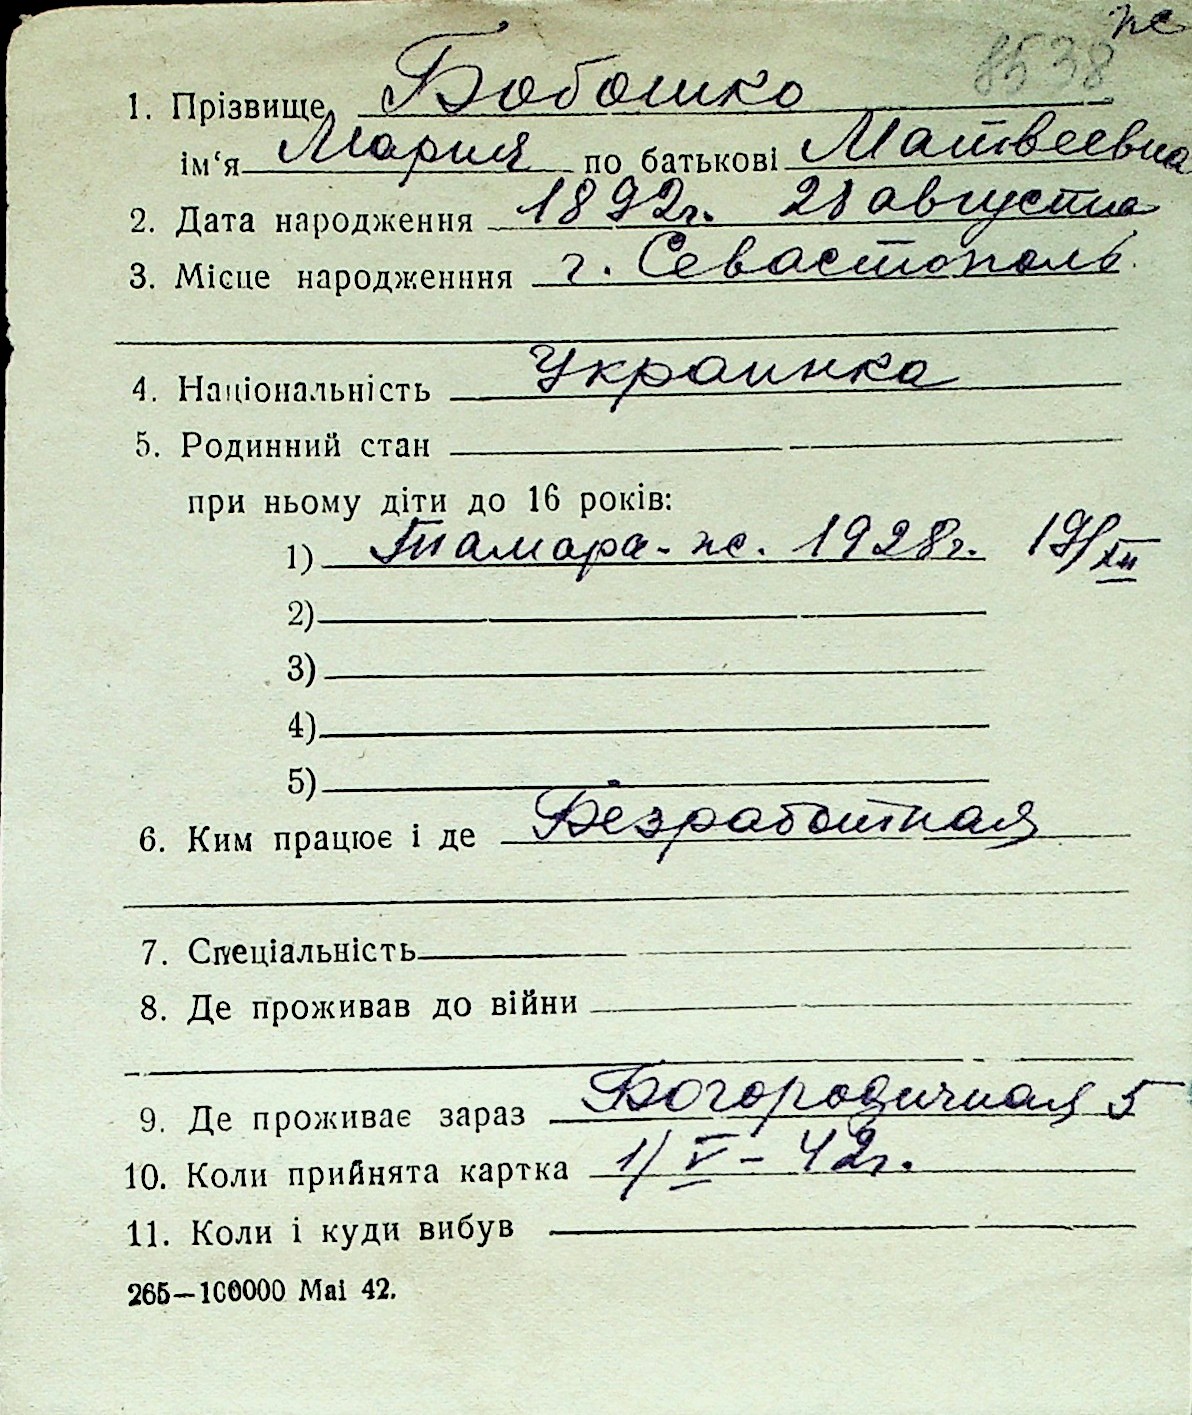 ж
8538
1. Прізвище Бобошко
ім‘я Мария по батькові Матвеевна
2. Дата народження 1892г. 28 августа
3. Місце народженння г. Севастополь
4. Національність Украинка
5. Родинний стан
при ньому діти до 16 років:
1) Тамара - ж. 1928г. 19/XII
2)
3)
4)
5)
6. Ким працює і де Безработная
7. Спеціальність
8. Де проживав до війни
9. Де проживає зараз Богородичная 5
10. Коли прийнята картка 1/V - 42г.
11. Коли і куди вибув
265—100000 Mai 42.